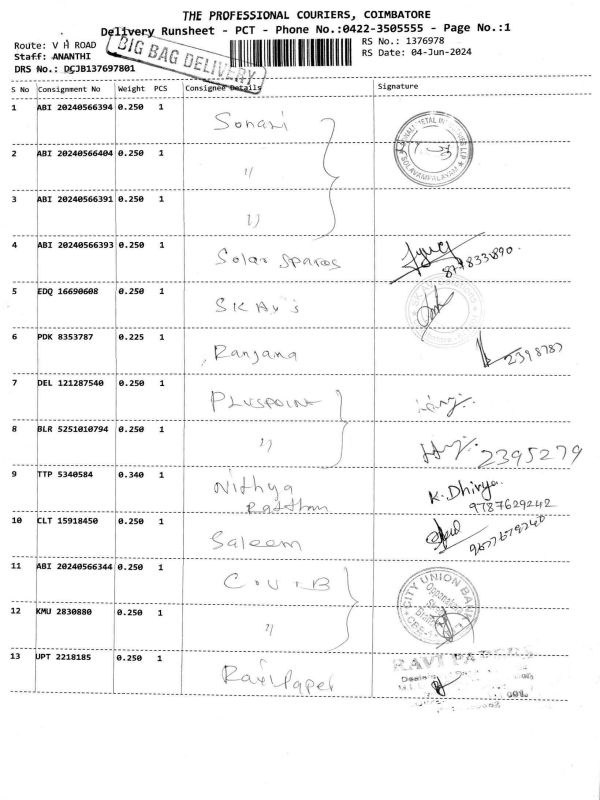 THE PROFESSIONAL COURIERS, COIMBATORE
Delivery Runsheet - PCT - Phone No.:0422-3505555 - Page No.:1
Route: V H ROAD
RS No.: 1376978
Staff: ANANTHI
RS Date: 04-Jun-2024
DRS No.: DCJB137697801
BIG BAG DELIVERY
S No Consignment No Weight PCS Consignee Details Signature
1 ABI 20240566394 0.250 1 Sonari
2 ABI 20240566404 0.250 1 "
3 ABI 20240566391 0.250 1 "
4 ABI 20240566393 0.250 1 Solar Spares 8778333890
5 EDQ 16690608 0.250 1 SKAy's
6 PDK 8353787 0.225 1 Ranjana 2398787
7 DEL 121287540 0.250 1 PLUSPOINT
8 BLR 5251010794 0.250 1 " 2395279
9 TTP 5340584 0.340 1 Nithya K. Dhivya
9787629242
10 CLT 15918450 0.250 1 Saleem
11 ABI 20240566344 0.250 1 C.U.B CITY UNION BANK
12 KMU 2830880 0.250 1 "
13 UPT 2218185 0.250 1 Ravi Paper RAVI PAPERS
Dealers